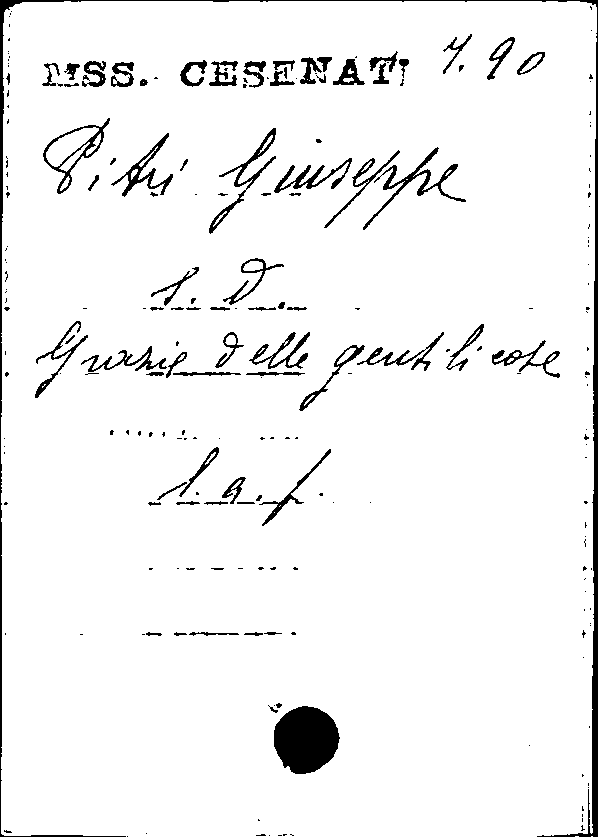 MSS. CESENATI 7.90
Pitri Giuseppe
S. D.
Grazie delle gentili cose
......
l. a. f.